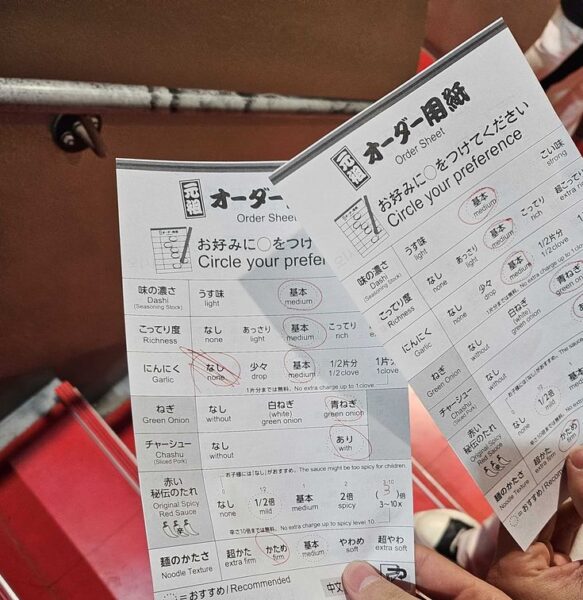 元祖 オーダー用
Order Sheet
お好みに○をつけ
Circle your prefer
味の濃さ
Dashi
(Seasoning Stock)
うす味
light
基本
medium
こってり度
Richness
なし
none
あっさり
light
基本
medium
こってり
rich
にんにく
Garlic
なし
none
少々
drop
基本
medium
1/2片分
1/2clove
1片分
1clove
1片分までは無料。No extra charge up to 1clove
ねぎ
Green Onion
なし
without
白ねぎ
(white)
green onion
青ねぎ
green onion
チャーシュー
Chashu
(Sliced Pork)
なし
without
あり
with
お子様には「なし」がおすすめ。The sauce might be too spicy for children.
赤い
秘伝のたれ
Original Spicy
Red Sauce
なし
none
1/2倍
mild
基本
medium
2倍
spicy
( 3 )倍
3~10x
辛さ10倍までは無料。No extra charge up to spicy level 10.
麺のかたさ
Noodle Texture
超かた
extra firm
かため
firm
基本
medium
やわめ
soft
超やわ
extra soft
=おすすめ/Recommended
中文
元祖 オーダー用紙
Order Sheet
お好みに○をつけてください
Circle your preference
味の濃さ
Dashi
(Seasoning Stock)
うす味
light
基本
medium
こい味
strong
こってり度
Richness
なし
none
あっさり
light
基本
medium
こってり
rich
超こって
extra r
にんにく
Garlic
なし
none
少々
drop
基本
medium
1/2片分
1/2clove
1片分までは無料。No extra charge up to 1c
ねぎ
Green Onion
なし
without
白ねぎ
(white)
green onion
青ねぎ
green onion
チャーシュー
Chashu
(Sliced Pork)
なし
without
あ
お子様には「なし」がおすすめ。The sauce
赤い
秘伝のたれ
Original Spicy
Red Sauce
なし
none
1/2倍
mild
基本
medium
麺のかたさ
Noodle Texture
超かた
extra firm
かため
firm
=おすすめ/Reco